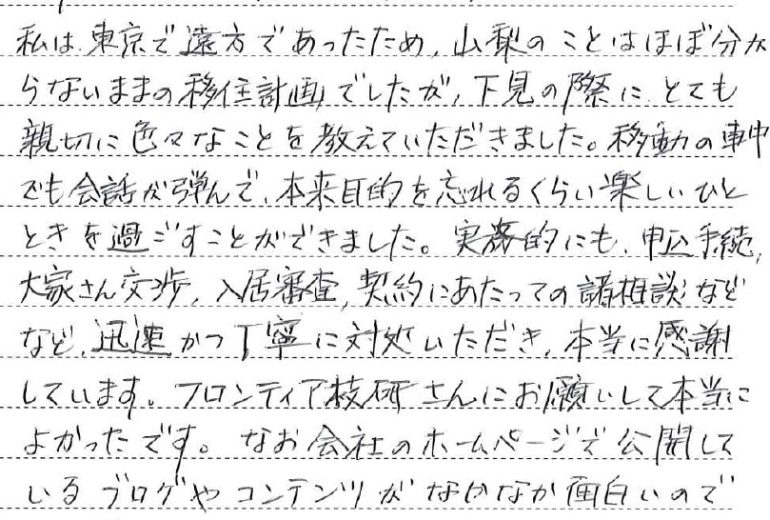 私は、東京で遠方であったため、山梨のことはほぼ分か
らないままの移住計画でしたが、下見の際に、とても
親切に色々なことを教えていただきました。移動の車中
でも会話が弾んで、本来目的を忘れるくらい楽しいひと
ときを過ごすことができました。実務的にも、申込手続、
大家さん交渉、入居審査、契約にあたっての諸相談など
など、迅速かつ丁寧に対処いただき、本当に感謝
しています。フロンティア技研さんにお願いして本当に
よかったです。なお会社のホームページで公開して
いるブログやコンテンツがなかなか面白いので